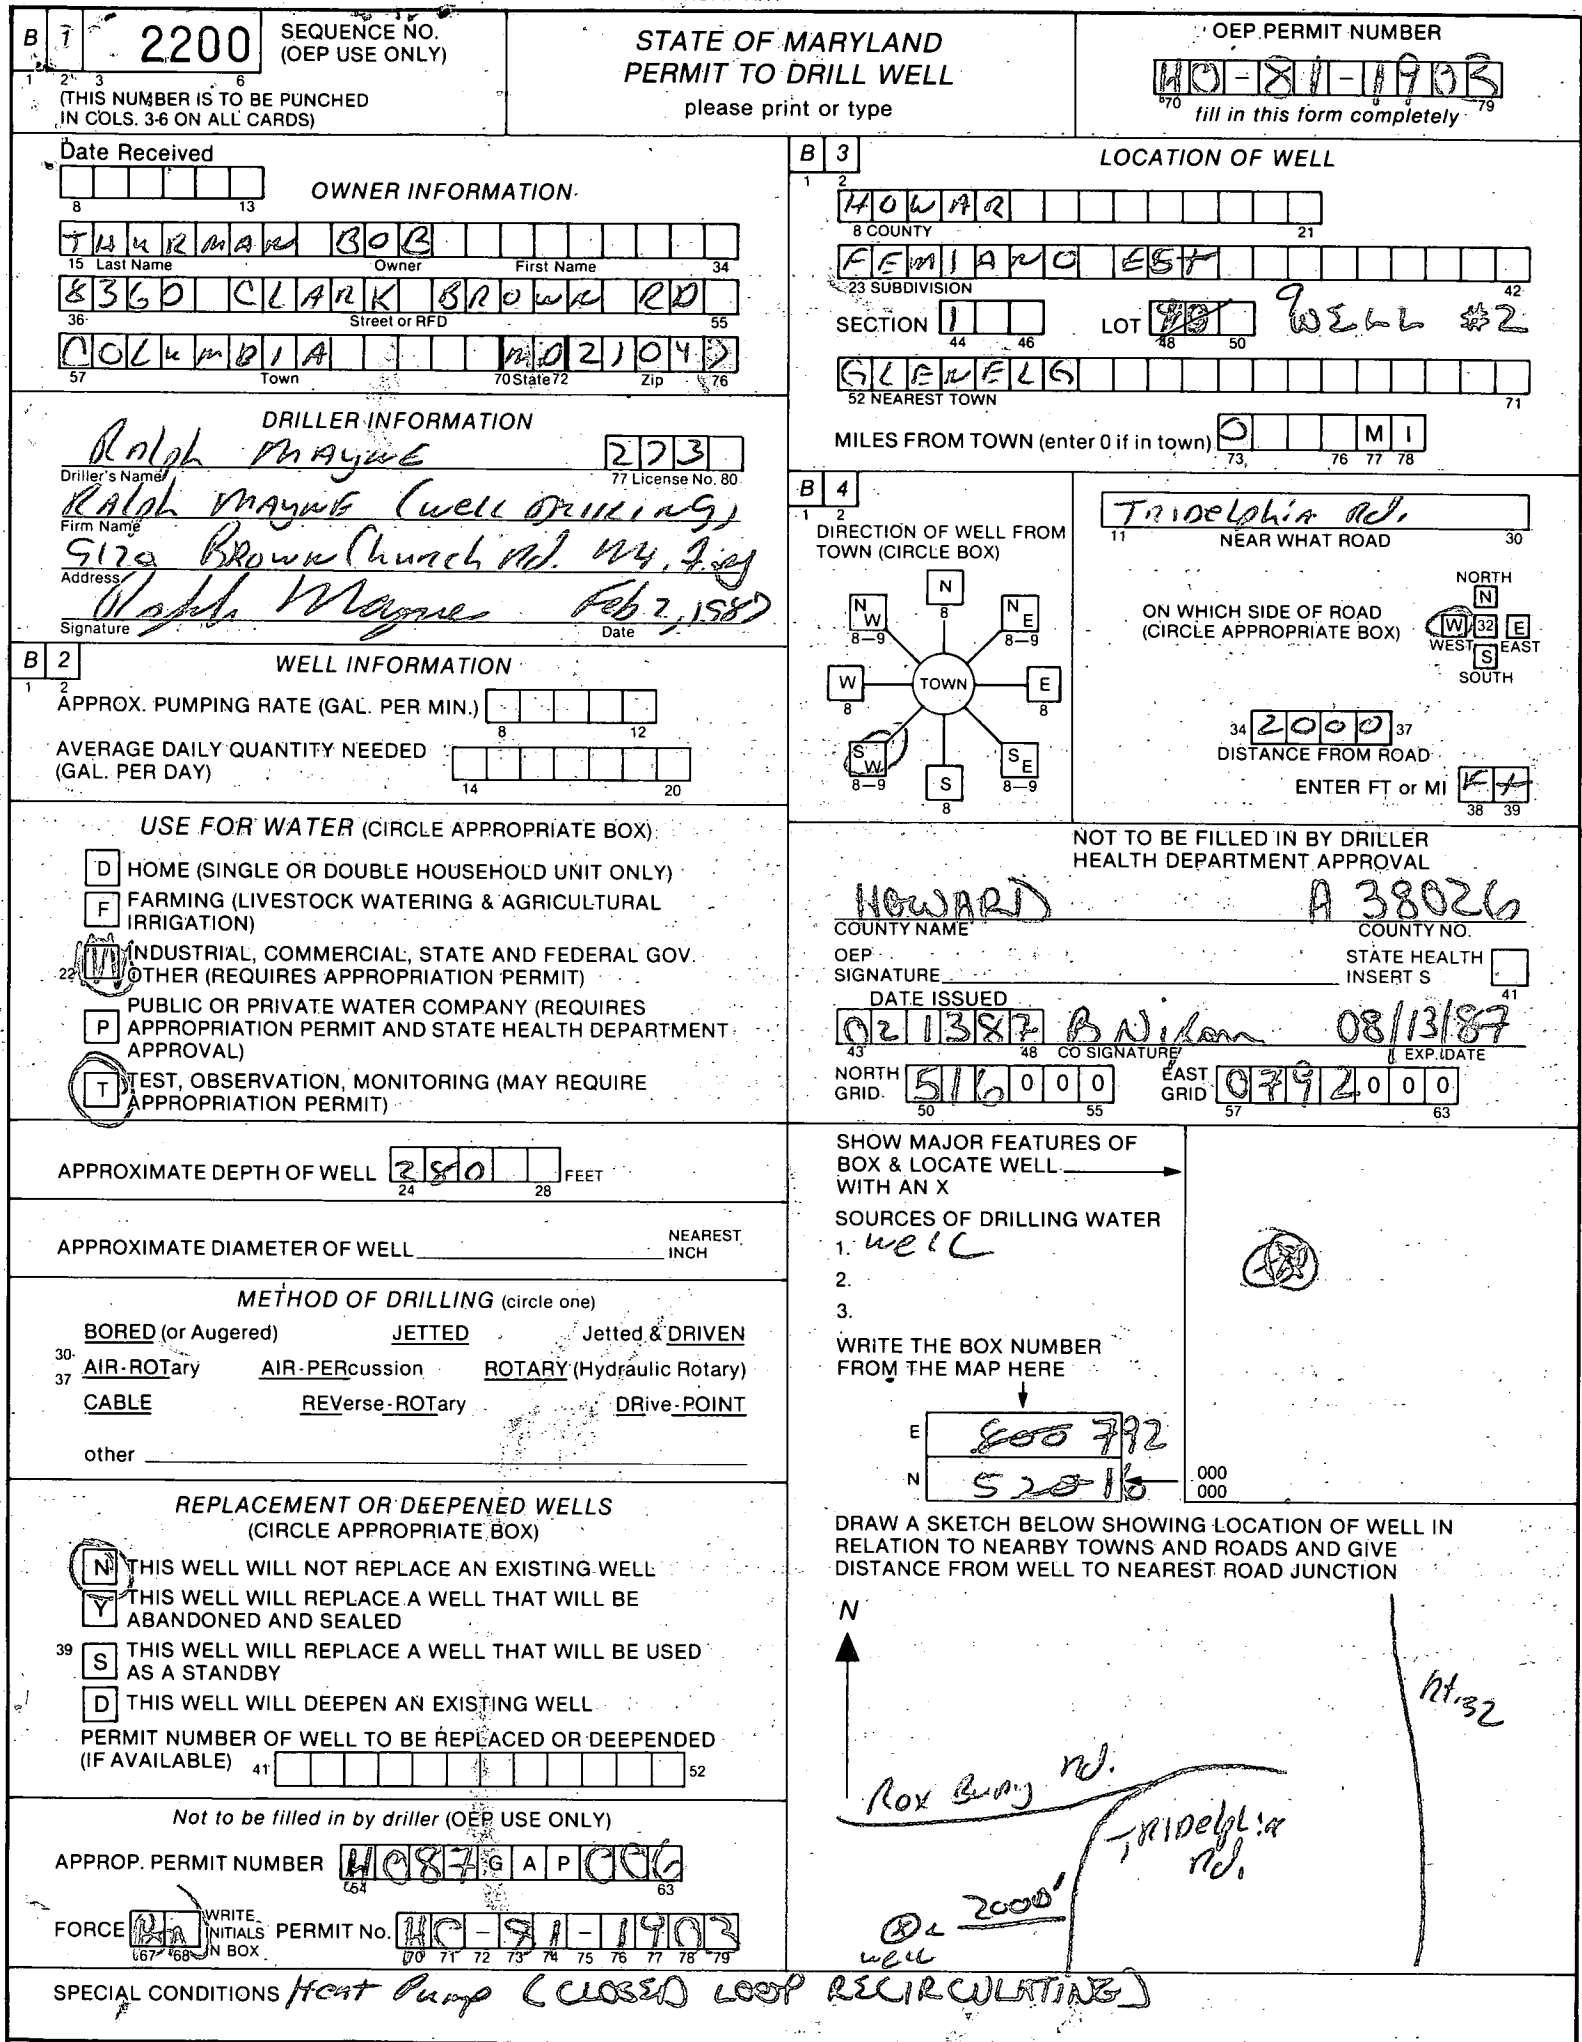 B 1 2200 SEQUENCE NO. (OEP USE ONLY)
1 2 3 6
(THIS NUMBER IS TO BE PUNCHED
IN COLS. 3-6 ON ALL CARDS)
STATE OF MARYLAND
PERMIT TO DRILL WELL
please print or type
OEP PERMIT NUMBER
HO-81-1903
70 79
fill in this form completely
Date Received
8 13
OWNER INFORMATION
THURMAN BOB
15 Last Name Owner First Name 34
8360 CLARK BROWN RD
36 Street or RFD 55
COLUMBIA MD 21047
57 Town 70 State 72 Zip 76
DRILLER INFORMATION
Ralph MAYNE 273
Driller's Name 77 License No. 80
RALPH MAYNE (well DRILLING)
Firm Name
9120 BROWN Church Rd. Mt. Airy
Address
Ralph Mayne Feb 2, 1987
Signature Date
B 2 WELL INFORMATION
1 2
APPROX. PUMPING RATE (GAL. PER MIN.)
8 12
AVERAGE DAILY QUANTITY NEEDED
(GAL. PER DAY)
14 20
USE FOR WATER (CIRCLE APPROPRIATE BOX)
D HOME (SINGLE OR DOUBLE HOUSEHOLD UNIT ONLY)
F FARMING (LIVESTOCK WATERING & AGRICULTURAL
IRRIGATION)
INDUSTRIAL, COMMERCIAL, STATE AND FEDERAL GOV.
22 OTHER (REQUIRES APPROPRIATION PERMIT)
PUBLIC OR PRIVATE WATER COMPANY (REQUIRES
P APPROPRIATION PERMIT AND STATE HEALTH DEPARTMENT
APPROVAL)
T TEST, OBSERVATION, MONITORING (MAY REQUIRE
APPROPRIATION PERMIT)
APPROXIMATE DEPTH OF WELL 280 FEET
24 28
APPROXIMATE DIAMETER OF WELL NEAREST INCH
METHOD OF DRILLING (circle one)
BORED (or Augered) JETTED Jetted & DRIVEN
30-37 AIR-ROTary AIR-PERcussion ROTARY (Hydraulic Rotary)
CABLE REVerse-ROTary DRive-POINT
other
REPLACEMENT OR DEEPENED WELLS
(CIRCLE APPROPRIATE BOX)
N THIS WELL WILL NOT REPLACE AN EXISTING WELL
Y THIS WELL WILL REPLACE A WELL THAT WILL BE
ABANDONED AND SEALED
39 S THIS WELL WILL REPLACE A WELL THAT WILL BE USED
AS A STANDBY
D THIS WELL WILL DEEPEN AN EXISTING WELL
PERMIT NUMBER OF WELL TO BE REPLACED OR DEEPENDED
(IF AVAILABLE) 41 52
Not to be filled in by driller (OEP USE ONLY)
APPROP. PERMIT NUMBER HO87GAP006
54 63
FORCE WRITE INITIALS IN BOX PERMIT No. HO-81-1903
67 68 70 71 72 73 74 75 76 77 78 79
B 3 LOCATION OF WELL
1 2
HOWAR
8 COUNTY 21
FEMIANO EST
23 SUBDIVISION 42
SECTION 1 LOT 9 WELL #2
44 46 48 50
GLENELG
52 NEAREST TOWN 71
MILES FROM TOWN (enter 0 if in town) 0 M I
73 76 77 78
B 4
1 2
DIRECTION OF WELL FROM
TOWN (CIRCLE BOX)
N
8
NW NE
8-9 8-9
W TOWN E
8 8
SW SE
8-9 8-9
S
8
Tridelphia Rd.
11 NEAR WHAT ROAD 30
ON WHICH SIDE OF ROAD
(CIRCLE APPROPRIATE BOX)
NORTH
N
W 32 E
WEST EAST
S
SOUTH
34 2000 37
DISTANCE FROM ROAD
ENTER FT or MI Ft
38 39
NOT TO BE FILLED IN BY DRILLER
HEALTH DEPARTMENT APPROVAL
HOWARD A 38026
COUNTY NAME COUNTY NO.
OEP SIGNATURE STATE HEALTH INSERT S
41
DATE ISSUED
021387 B Nixon 08/13/87
43 48 CO SIGNATURE EXP. DATE
NORTH GRID 516000 EAST GRID 0792000
50 55 57 63
SHOW MAJOR FEATURES OF
BOX & LOCATE WELL
WITH AN X
SOURCES OF DRILLING WATER
1. well
2.
3.
WRITE THE BOX NUMBER
FROM THE MAP HERE
E 800 792
N 520 16
000
000
DRAW A SKETCH BELOW SHOWING LOCATION OF WELL IN
RELATION TO NEARBY TOWNS AND ROADS AND GIVE
DISTANCE FROM WELL TO NEAREST ROAD JUNCTION
N
Rt. 32
Rox Bury Rd.
TRIDelphia Rd.
2000'
well
SPECIAL CONDITIONS Heat Pump (CLOSED LOOP RECIRCULATING)